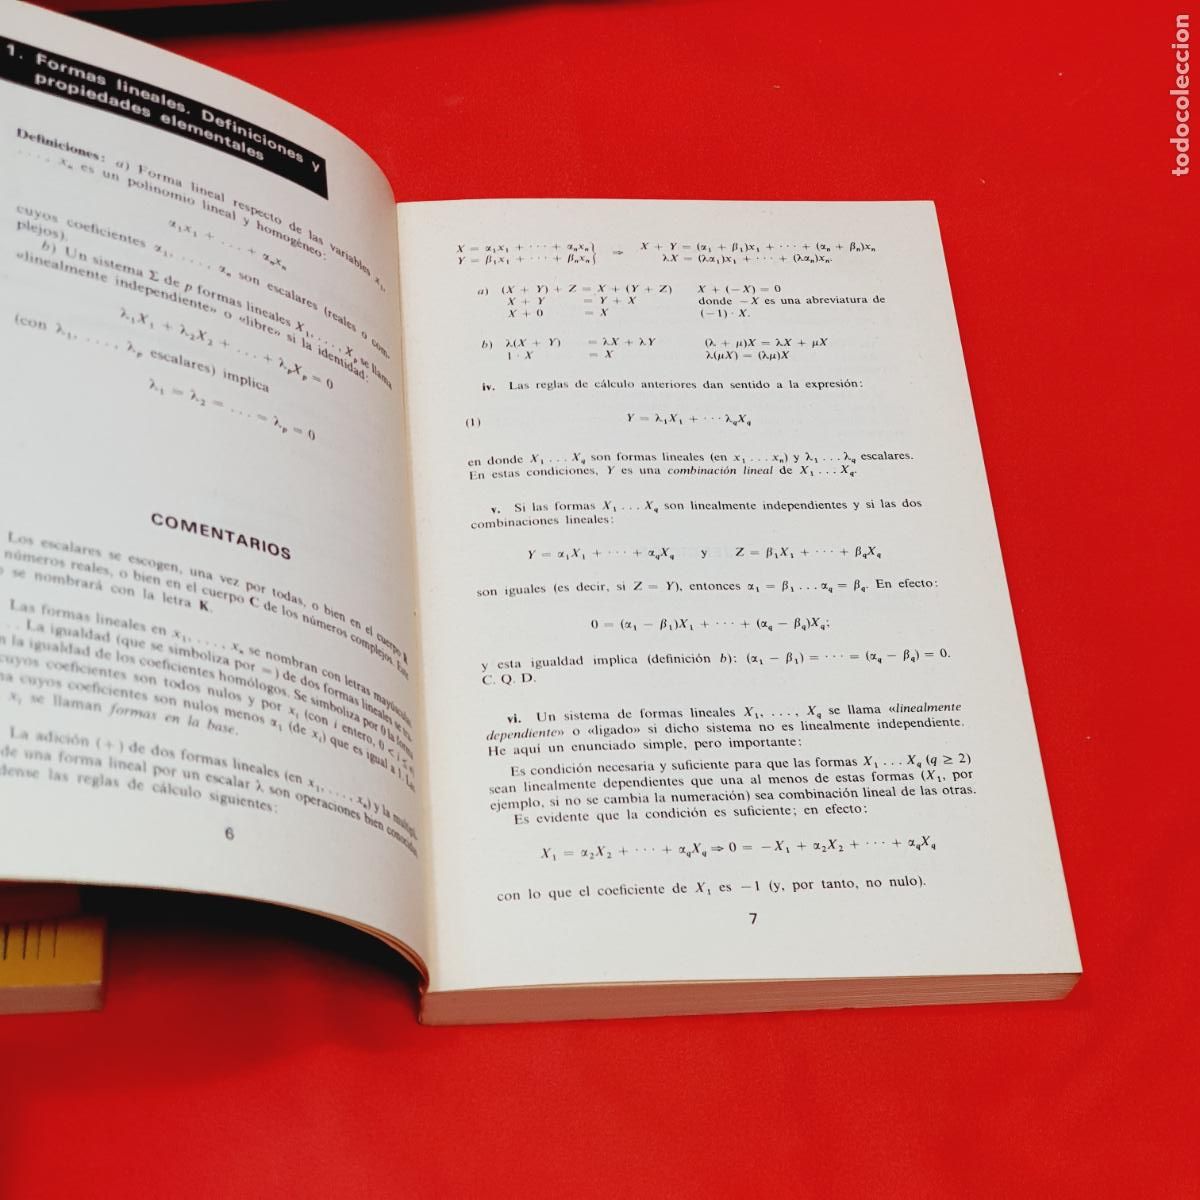 1. Formas lineales. Definiciones y
propiedades elementales
Definiciones: a) Forma lineal respecto de las variables x₁,
. . . , xₙ es un polinomio lineal y homogéneo:
α₁x₁ + . . . + αₙxₙ
cuyos coeficientes α₁, . . . , αₙ son escalares (reales o com-
plejos).
b) Un sistema Σ de p formas lineales X₁, . . . , Xₚ se llama
«linealmente independiente» o «libre» si la identidad:
λ₁X₁ + λ₂X₂ + . . . + λₚXₚ = 0
(con λ₁, . . . , λₚ escalares) implica
λ₁ = λ₂ = . . . = λₚ = 0
COMENTARIOS
Los escalares se escogen, una vez por todas, o bien en el cuerpo R
números reales, o bien en el cuerpo C de los números complejos. Este
se nombrará con la letra K.
Las formas lineales en x₁, . . . , xₙ se nombran con letras mayúsculas
. . La igualdad (que se simboliza por =) de dos formas lineales se
la igualdad de los coeficientes homólogos. Se simboliza por 0 la forma
cuyos coeficientes son todos nulos y por xᵢ (con i entero, 0 < i ≤ n)
cuyos coeficientes son nulos menos αᵢ (de xᵢ) que es igual a 1. Las
xᵢ se llaman formas en la base.
La adición (+) de dos formas lineales (en x₁, . . . , xₙ) y la multipli-
de una forma lineal por un escalar λ son operaciones bien conocidas
las reglas de cálculo siguientes:
6
X = α₁x₁ + · · · + αₙxₙ} ⇒ X + Y = (α₁ + β₁)x₁ + · · · + (αₙ + βₙ)xₙ
Y = β₁x₁ + · · · + βₙxₙ} λX = (λα₁)x₁ + · · · + (λαₙ)xₙ.
a) (X + Y) + Z = X + (Y + Z) X + (−X) = 0
X + Y = Y + X donde −X es una abreviatura de
X + 0 = X (−1) · X.
b) λ(X + Y) = λX + λY (λ + μ)X = λX + μX
1 · X = X λ(μX) = (λμ)X
iv. Las reglas de cálculo anteriores dan sentido a la expresión:
(1) Y = λ₁X₁ + · · · λ_qX_q
en donde X₁ . . . X_q son formas lineales (en x₁ . . . xₙ) y λ₁ . . . λ_q escalares.
En estas condiciones, Y es una combinación lineal de X₁ . . . X_q.
v. Si las formas X₁ . . . X_q son linealmente independientes y si las dos
combinaciones lineales:
Y = α₁X₁ + · · · + α_qX_q y Z = β₁X₁ + · · · + β_qX_q
son iguales (es decir, si Z = Y), entonces α₁ = β₁ . . . α_q = β_q. En efecto:
0 = (α₁ − β₁)X₁ + · · · + (α_q − β_q)X_q;
y esta igualdad implica (definición b): (α₁ − β₁) = · · · = (α_q − β_q) = 0.
C. Q. D.
vi. Un sistema de formas lineales X₁, . . . , X_q se llama «linealmente
dependiente» o «ligado» si dicho sistema no es linealmente independiente.
He aquí un enunciado simple, pero importante:
Es condición necesaria y suficiente para que las formas X₁ . . . X_q (q ≥ 2)
sean linealmente dependientes que una al menos de estas formas (X₁, por
ejemplo, si no se cambia la numeración) sea combinación lineal de las otras.
Es evidente que la condición es suficiente; en efecto:
X₁ = α₂X₂ + · · · + α_qX_q ⇒ 0 = −X₁ + α₂X₂ + · · · + α_qX_q
con lo que el coeficiente de X₁ es −1 (y, por tanto, no nulo).
7
todocoleccion